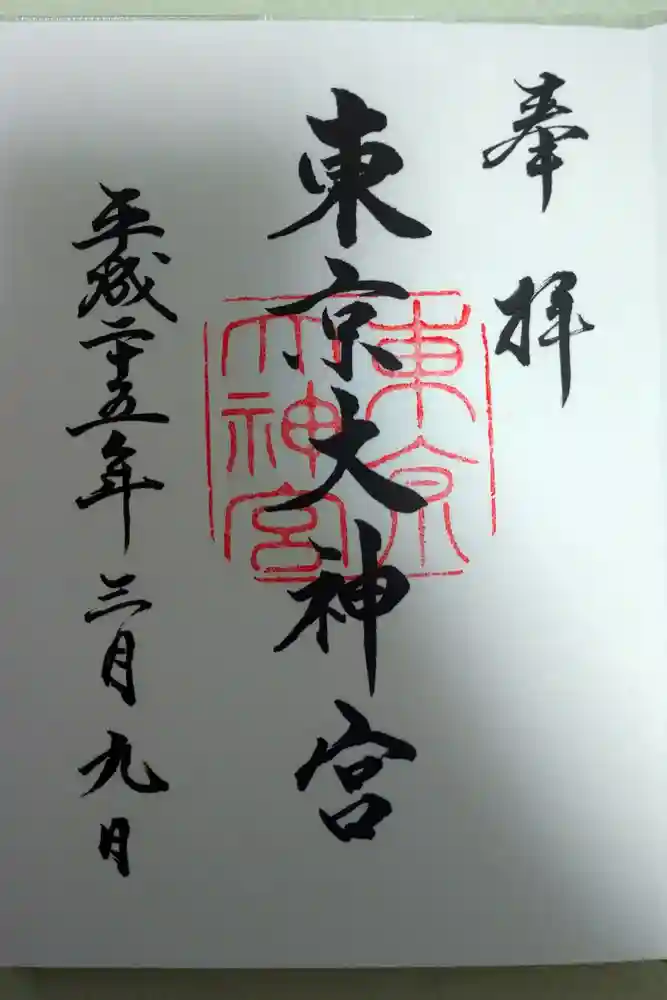 奉拝
東京大神宮
東京
大神宮
平成二十五年三月九日